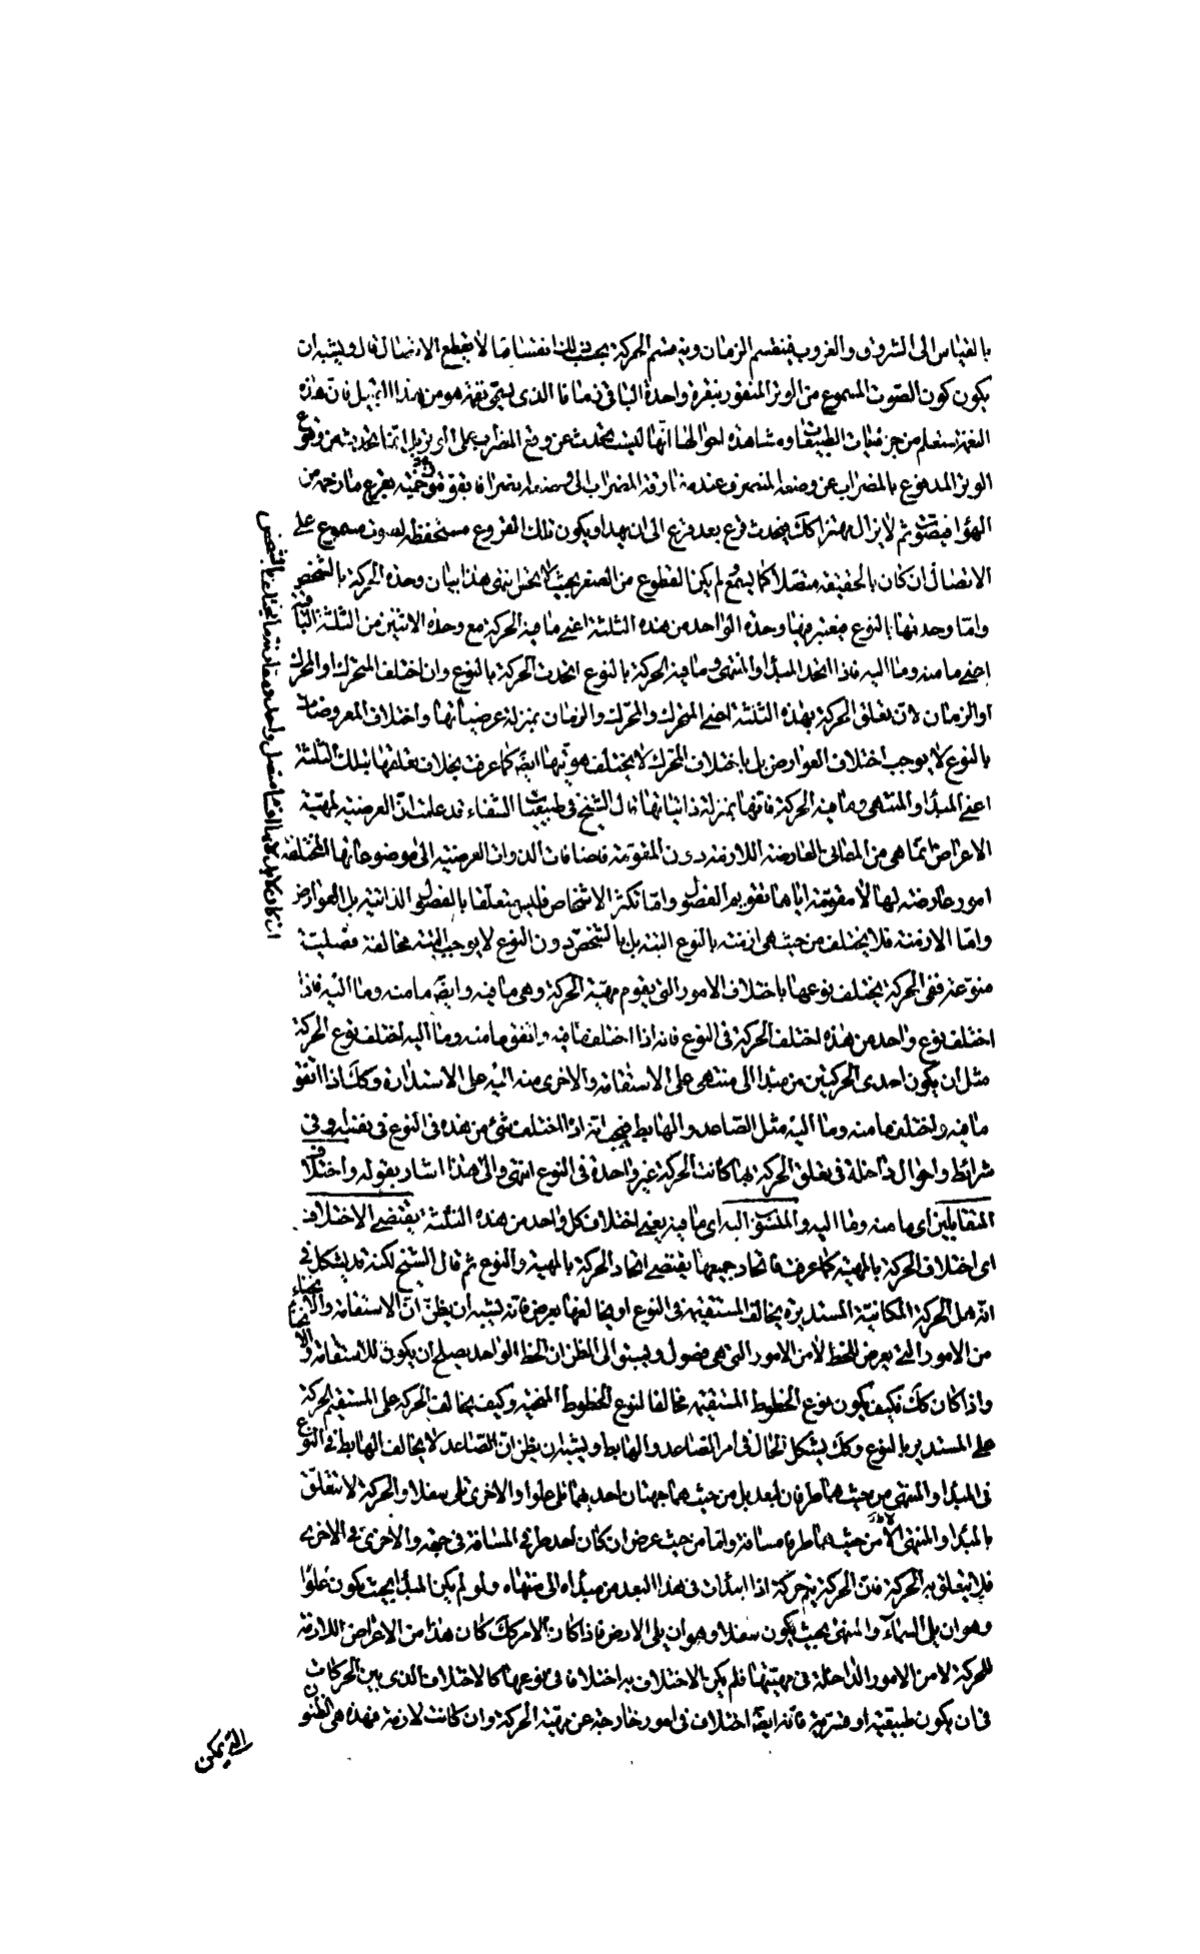 بالقياس الى الشروق والغروب فينقسم الزمان وبه منقسم الحركة بحسب ذلك انقساما لا يقطع الاتصال قال ويشبه ان
يكون كون الصوت المسموع من الوتر المنقور بنقرة واحدة الباقى زمانا الذى يسمى نغمة هو من هذا القبيل فان هذه
النغمة ستعلم من جزئيات الطبيعيات ومشاهدة احوالها انها ليست يحدث عن وقع المضراب على الوتر بل انما يحدث من وقوع
الوتر المدفوع بالمضراب عن وضعه المنصرف عند مفارقة المضراب الى وضعه انصرافا بقوة وحمية يقرع ما زحمه من
الهواء فيصوت ثم لا يزال مهتزا كك يحدث قرع بعد قرع الى ان يهدا ويكون تلك القروع مستحفظة لصوت مسموع على
الاتصال ان كان بالحقيقة متصلا كما يسمع لم يكن القطوع من الصغر بحيث لا يحس انتهى هذا بيان وحدة الحركة بالشخص
واما وحدتها بالنوع فيعتبر فيها وحدة الواحد من هذه الثلثة اعنى ما فيه الحركة مع وحدة الاثنين من الثلثة الباقية
اعنى ما منه وما اليه فاذا اتحد المبدا والمنتهى وما فيه الحركة بالنوع اتحدت الحركة بالنوع وان اختلف المتحرك او المحرك
او الزمان لان تعلق الحركة بهذه الثلثة اعنى المتحرك والمحرك والزمان بمنزلة عرضياتها واختلاف المعروضات
بالنوع لا يوجب اختلاف العوارض بل باختلاف المحرك لا يختلف هويتها ايضا كما عرفت بخلاف تعلقها بتلك الثلثة
اعنى المبدا والمنتهى وما فيه الحركة فانها بمنزلة ذاتياتها قال الشيخ فى طبيعيات الشفاء قد علمت ان العرضية لمهية
الاعراض انما هى من المعانى العارضة اللازمة دون المقومة فاضافات الذوات العرضية الى موضوعاتها المختلفة
امور عارضة لها لا مقومة اياها تقويم الفصول واما تكثر الاشخاص فليس متعلقا بالفصول الذاتية بل العوارض
واما الازمنة فلا يختلف من حيث هى ازمنة بالنوع البتة بل بالشخص دون النوع لا يوجب البتة مخالفة فصلية
منوعة ففى الحركة يختلف نوعها باختلاف الامور التى يقوم مهية الحركة وهى ما فيه وايضا ما منه وما اليه فاذا
اختلف نوع واحد من هذه اختلف الحركة فى النوع فانه اذا اختلف ما فيه واتفق ما منه وما اليه اختلف نوع الحركة
مثل ان يكون احدى الحركتين من مبدا الى منتهى على الاستقامة والاخرى منه اليه على الاستدارة وكك اذا اتفق
ما فيه واختلف ما منه وما اليه مثل الصاعد والهابط فيجب انه اذا اختلف شئ من هذه فى النوع فى نفسه او فى
شرائط واحوال داخلة فى تعلق الحركة بها كانت الحركة غير واحدة فى النوع انتهى والى هذا اشار بقوله واختلاف
المتقابلين اى ما منه وما اليه والمنسوب اليه اى ما فيه يعنى اختلاف كل واحد من هذه الثلثة يقتضى الاختلاف
اى اختلاف الحركة بالمهية كما عرفت فاتحاد جميعها يقتضى اتحاد الحركة بالمهية والنوع ثم قال الشيخ لكنه قد يشكل فى
انه هل الحركة المكانية المستديرة يخالف المستقيمة فى النوع او يخالفها بعرض فانه يشبه ان يظن ان الاستقامة والانحناء
من الامور التى يعرض للخط لا من الامور التى هى فصول ويسبق الى الظن ان الخط الواحد يصلح ان يكون للاستقامة والانحناء
واذا كان كك فكيف يكون نوع الخطوط المستقيمة مخالفا لنوع الخطوط المنحنية وكيف يخالف الحركة على المستقيم الحركة
على المستدير بالنوع وكك يشكل الحال فى امر الصاعد والهابط ويشبه ان يظن ان الصاعد لا يخالف الهابط فى النوع
فى المبدا والمنتهى من حيث هما طرفان لبعد بل من حيث هما جهتان احديهما تلى علوا والاخرى تلى سفلا والحركة لا تتعلق
بالمبدا والمنتهى الا من حيث هما طرفا مسافة واما من حيث عرض ان كان احد طرفى المسافة فى جهة والاخرى فى الاخرى
فلا يتعلق به الحركة فان الحركة يتم حركة اذا ابتدات فى هذا البعد من مبداه الى منتهاه ولو لم يكن المبدا بحيث يكون علوا
وهو ان يلى السماء والمنتهى بحيث يكون سفلا وهو ان يلى الارض فاذا كان الامر كك كان هذا من الاعراض اللازمة
للحركة لا من الامور الداخلة فى مهيتها فلم يكن الاختلاف به اختلافا فى نوعها كالاختلاف الذى بين الحركات
فى ان يكون طبيعية او قسرية فانه ايضا اختلاف فى امور خارجة عن مهية الحركة وان كانت لازمة فهذه هى الظنون
التى يمكن